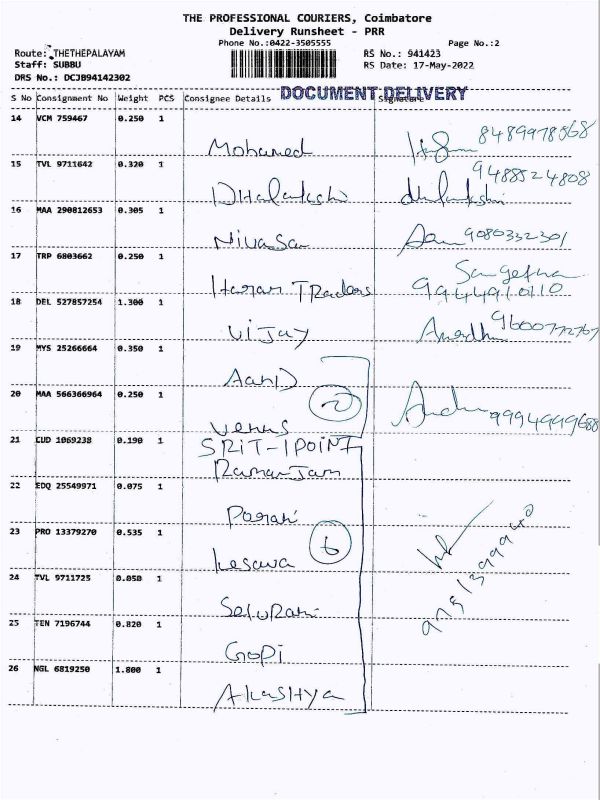 THE PROFESSIONAL COURIERS, Coimbatore
Delivery Runsheet - PRR
Phone No.:0422-3505555 Page No.:2
Route: THETHEPALAYAM RS No.: 941423
Staff: SUBBU RS Date: 17-May-2022
DRS No.: DCJB94142302
DOCUMENT DELIVERY
S No Consignment No Weight PCS Consignee Details Signature
14 VCM 759467 0.250 1
Mohamed 8489978568
15 TVL 9711642 0.320 1
9488524808
Dhalakshi
16 MAA 290812653 0.305 1
Nivasan 9080332301
17 TRP 6803662 0.250 1
Sangeetha
Haran Traders 9944910110
18 DEL 527857254 1.300 1
Vijay 9600772767
19 MYS 25266664 0.350 1
20 MAA 566366964 0.250 1
2
Venus 9994999688
21 CUD 1069238 0.190 1
SPIT-IPOINT
Ramanjam
22 EDQ 25549971 0.075 1
23 PRO 13379270 0.535 1
6
Kesava
24 TVL 9711725 0.050 1
Selvrani
25 TEN 7196744 0.820 1
Gopi
26 NGL 6819250 1.800 1
Akashya